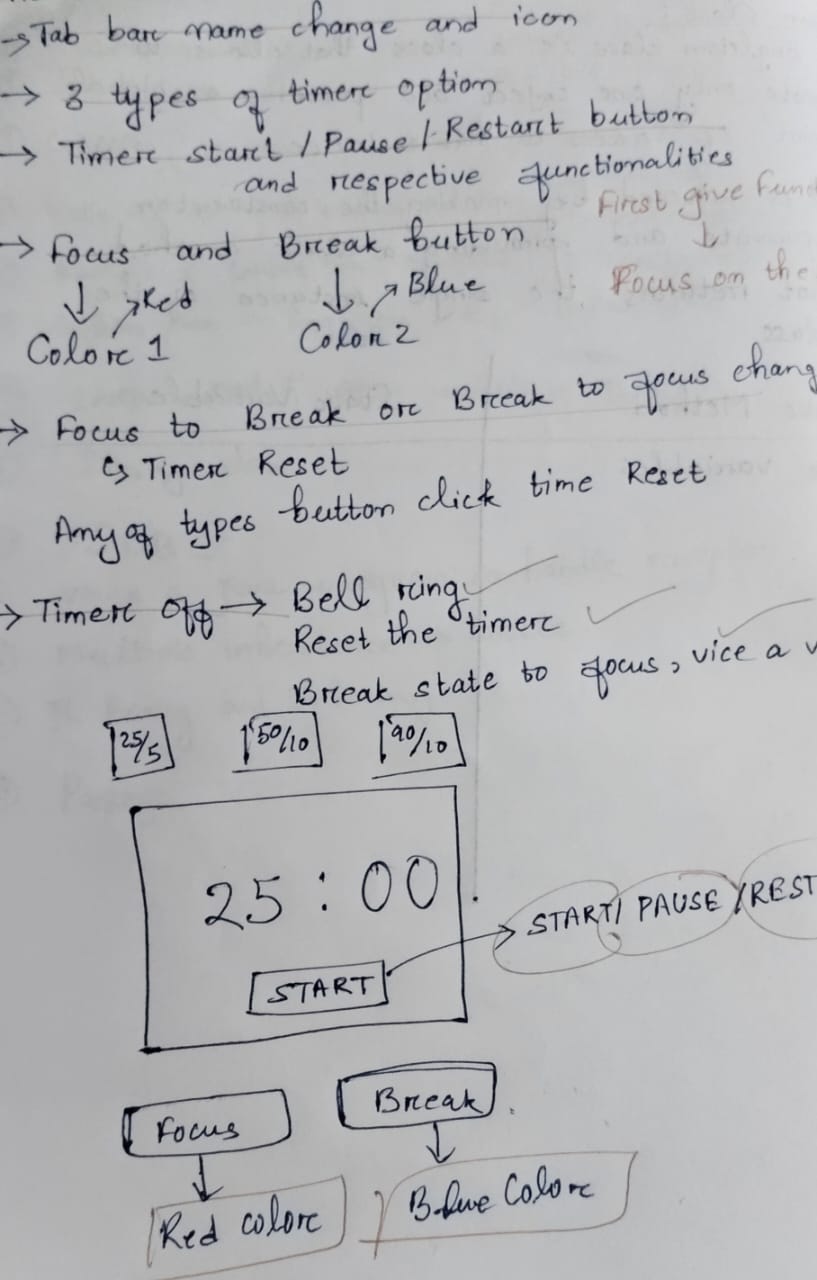 → Tab bar name change and icon
→ 3 types of timer option
→ Timer start / Pause / Restart button
and respective functionalities
First give Func
↓
→ Focus and Break button
Focus on the
↓ ↗ Red ↓ ↗ Blue
Color 1 Color 2
→ Focus to Break or Break to focus chang
↳ Timer Reset
Any of types button click time Reset
→ Timer off → Bell ring ✓
Reset the timer ✓
Break state to focus, vice a v
25/5 50/10 90/10
25 : 00
START → START / PAUSE / REST
Focus Break
↓ ↓
Red color Blue Color